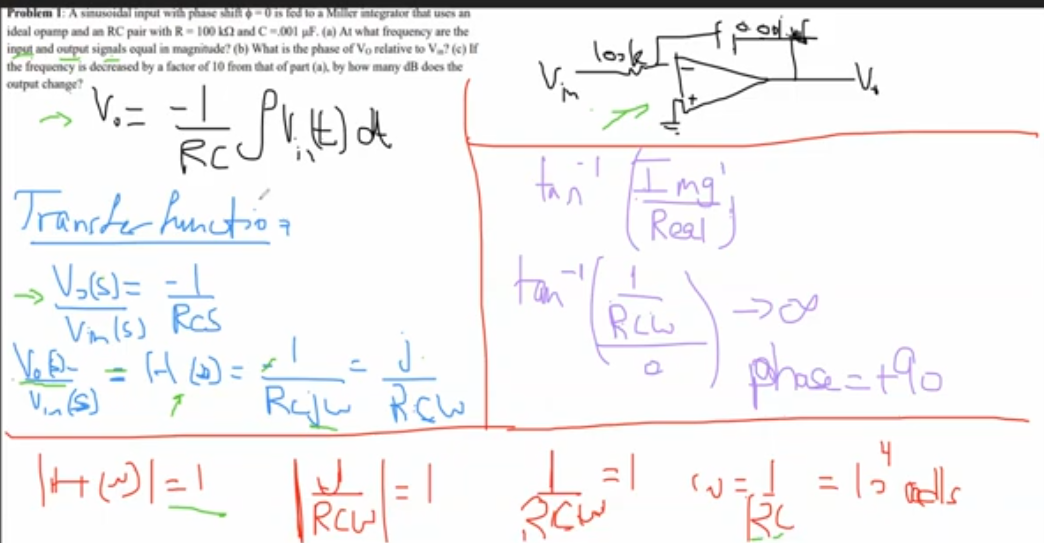 Problem 1: A sinusoidal input with phase shift ϕ = 0 is fed to a Miller integrator that uses an
ideal opamp and an RC pair with R = 100 kΩ and C =.001 μF. (a) At what frequency are the
input and output signals equal in magnitude? (b) What is the phase of Vo relative to Vin? (c) If
the frequency is decreased by a factor of 10 from that of part (a), by how many dB does the
output change?
100k
Vin
-
+
Vo
→ Vo = -1/RC ∫Vin(t) dt
Transfer function
→ Vo(s)/Vin(s) = -1/RCS
Vo(s)/Vin(s) = H(s) = -1/RCjω = j/RCω
tan⁻¹ (Img/Real)
tan⁻¹ ((1/RCω)/0) → ∞
phase = +90
|H(ω)| = 1
|j/RCω| = 1
1/RCω = 1
ω = 1/RC = 10⁴ rad/s